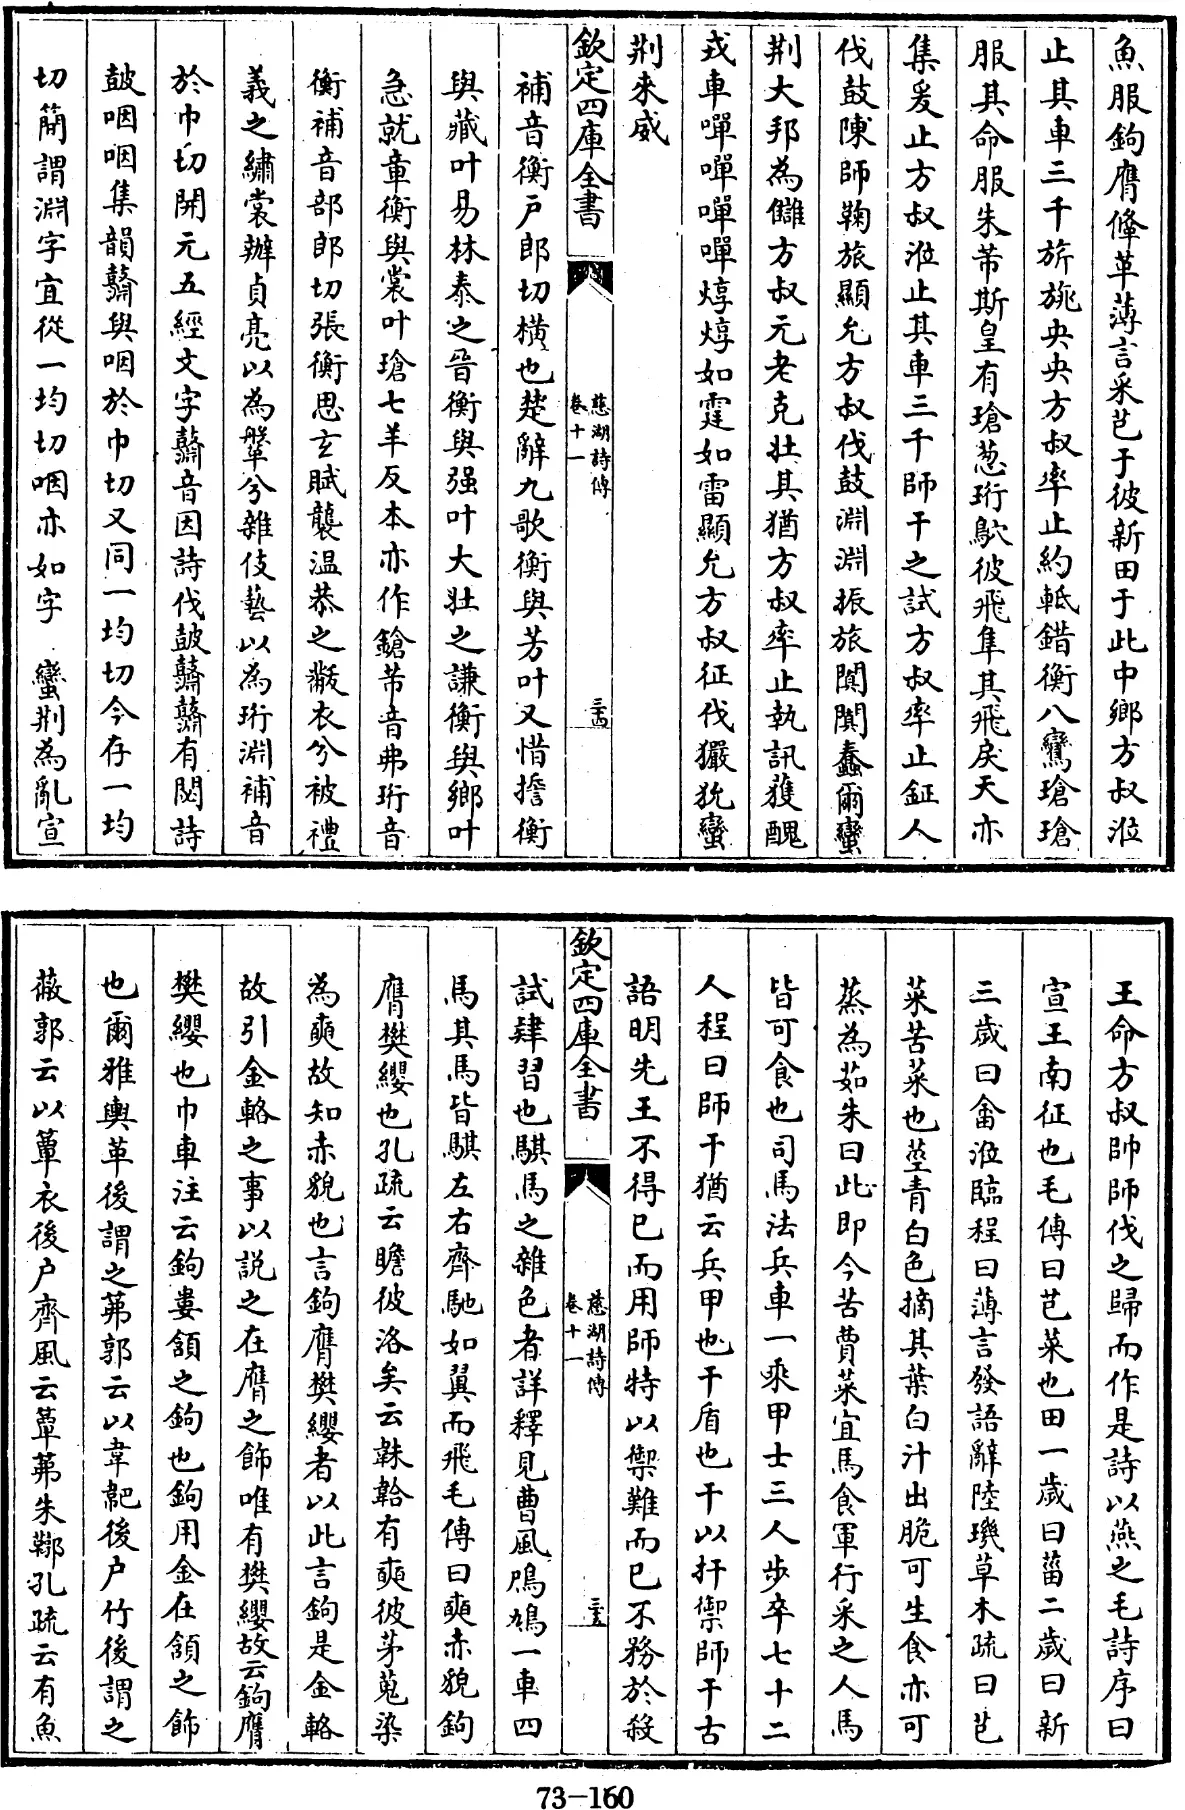 魚服鉤膺鞗革薄言采芑于彼新田于此中鄉方叔涖
止其車三千旂旐央央方叔率止約軝錯衡八鸞瑲瑲
服其命服朱芾斯皇有瑲葱珩鴥彼飛隼其飛戾天亦
集爰止方叔涖止其車三千師干之試方叔率止鉦人
伐鼓陳師鞠旅顯允方叔伐鼓淵淵振旅闐闐蠢爾蠻
荆大邦為讎方叔元老克壯其猶方叔率止執訊獲醜
戎車嘽嘽嘽嘽焞焞如霆如雷顯允方叔征伐玁狁蠻
荆來威
欽定四庫全書
慈湖詩傳
卷十一
三西
補音衡戸郎切横也楚辭九歌衡與芳叶又惜擔衡
與藏叶易林泰之晉衡與强叶大壯之謙衡與鄉叶
急就章衡與裳叶瑲七羊反本亦作鎗芾音弗珩音
衡補音部郎切張衡思玄賦襲温恭之黻衣兮被禮
義之繡裳辮貞亮以為鞶兮雜伎藝以為珩淵補音
於巾切開元五經文字鼘音因詩伐鼓鼘鼘有駜詩
鼓咽咽集韻鼘與咽於巾切又同一均切今存一均
切簡謂淵字宜從一均切咽亦如字 蠻荆為亂宣
王命方叔帥師伐之歸而作是詩以燕之毛詩序曰
宣王南征也毛傳曰芑菜也田一歲曰菑二歲曰新
三歲曰畬涖臨程曰薄言發語辭陸璣草木疏曰芑
菜苦菜也莖青白色摘其葉白汁出脆可生食亦可
蒸為茹朱曰此即今苦蕒菜宜馬食軍行采之人馬
皆可食也司馬法兵車一乘甲士三人步卒七十二
人程曰師干猶云兵甲也干盾也干以扞禦師干古
語明先王不得已而用師特以禦難而已不務於殺
欽定四庫全書
慈湖詩傳
卷十一
三五
試肄習也騏馬之雜色者詳釋見曹風鳲鳩一車四
馬其馬皆騏左右齊馳如翼而飛毛傳曰奭赤貌鉤
膺樊纓也孔疏云瞻彼洛矣云韎韐有奭彼茅蒐染
為奭故知赤貌也言鉤膺樊纓者以此言鉤是金輅
故引金輅之事以説之在膺之飾唯有樊纓故云鉤膺
樊纓也巾車注云鉤婁頷之鉤也鉤用金在頷之飾
也爾雅輿革後謂之笰郭云以韋靶後户竹後謂之
蔽郭云以簟衣後户齊風云簟茀朱鞹孔疏云有魚
73-160